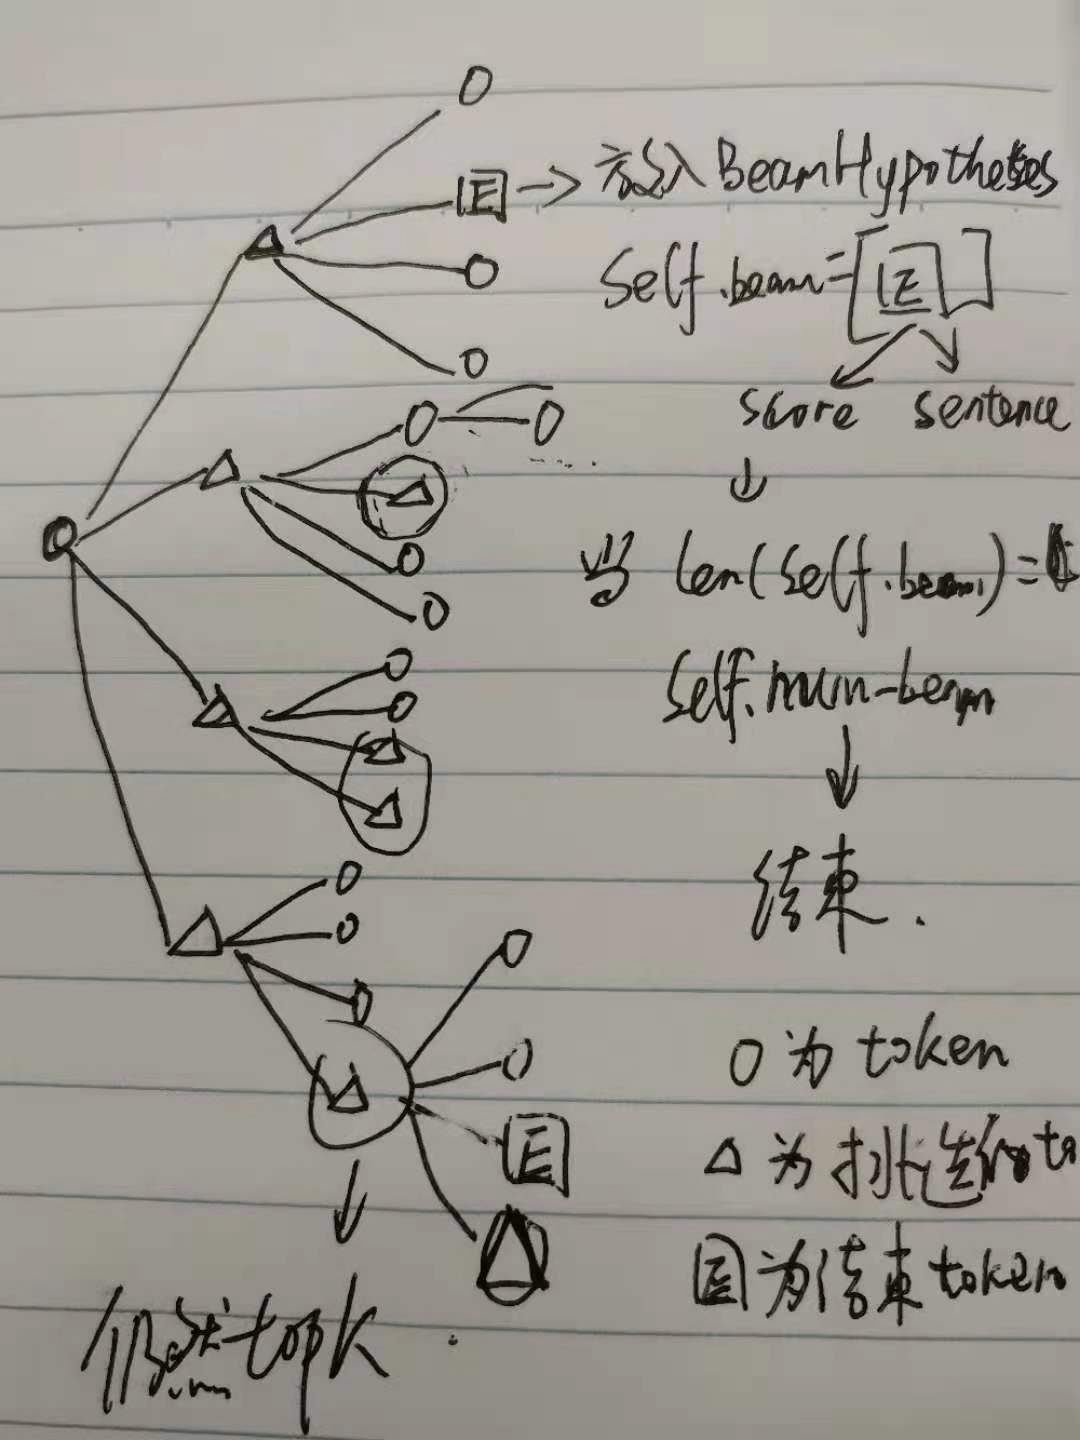 E → 放入 BeamHypotheses
self.beam=[E]
score sentence
当 len(self.beam)=
self.num-beam
结束.
E
O 为 token
△ 为挑选的to
E为结束token
仍然topk.